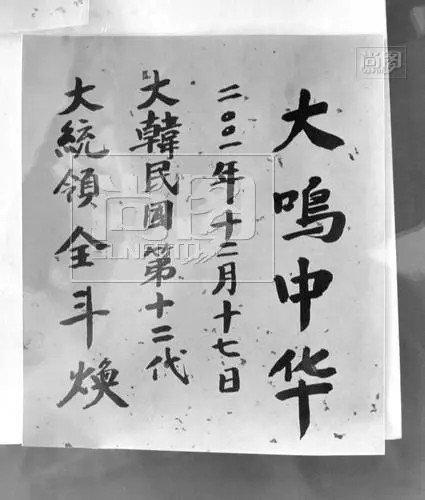 大鳴中华
二〇〇一年十二月十七日
大韓民国第十二代
大統領全斗煥
尚图